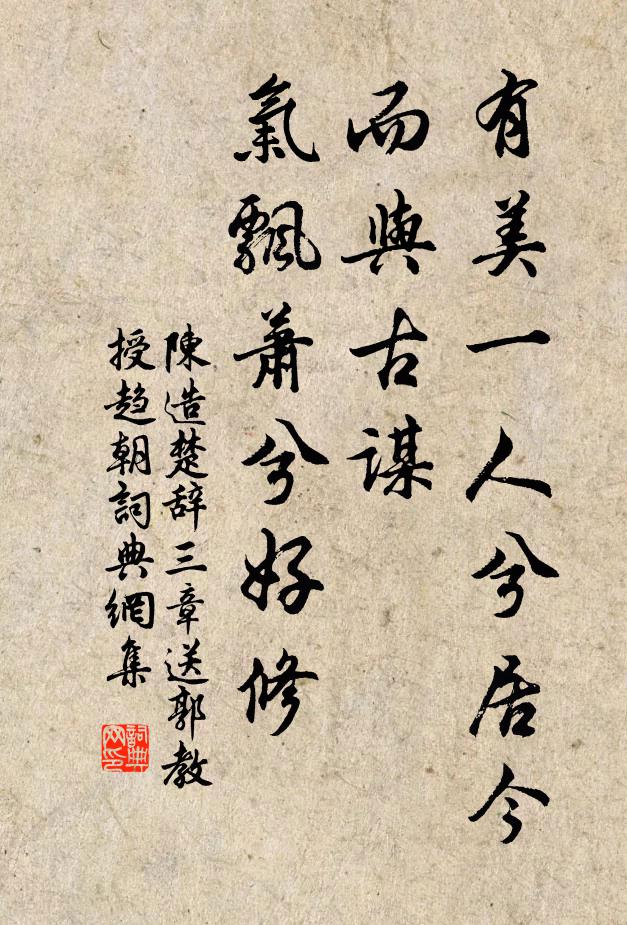 有美一人兮居今
而與古謀
氣飄蕭兮好修
陳造楚辞三章送郭教
授趋朝詞典網集
詞典網印